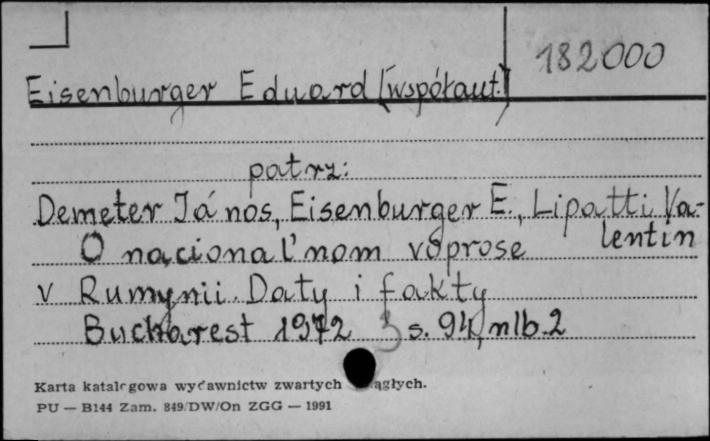 182000
Eisenburger Eduard [współaut.]
patrz:
Demeter János, Eisenburger E., Lipatti Va-
lentin
O nacional'nom voprose
v Rumynii. Daty i fakty
Bucharest 1972 s. 94, nlb. 2
Karta katalogowa wydawnictw zwartych ągłych.
PU — B144 Zam. 849/DW/On ZGG — 1991